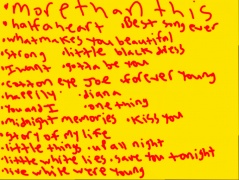 •more than this
•half a heart •Best song ever
•what makes you beautiful
•strong •little black dress
•I want •gotta be you
•cotton eye Joe •forever young
•happily •diana
•You and I •one thing
•midnight memories •Kiss you
•story of my life
•little things •up all night
•little white lies •save you tonight
•live while we're young